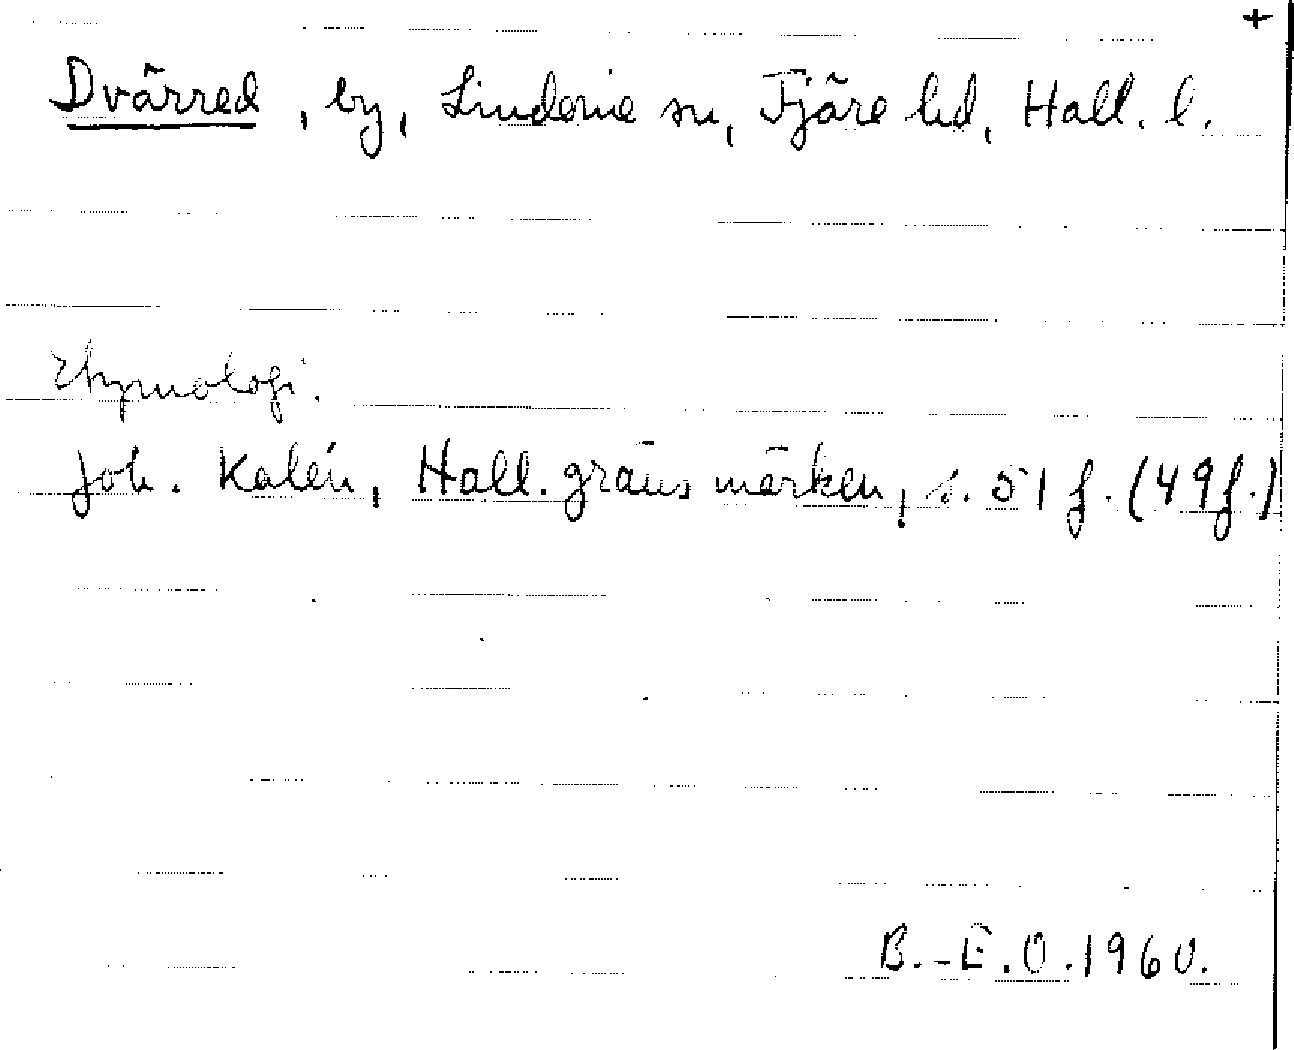 +
Dvärred, by, Lindome sn, Fjäre hd, Hall. l.
Etymologi.
Joh. Kalén, Hall. gränsmärken, s. 51 f. (49 f.)
B.-E.O. 1960.